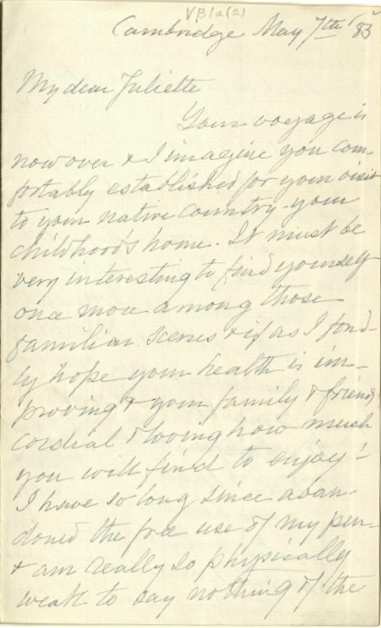 VB1a(2)
Cambridge May 7th '83
My dear Juliette
Your voyage is
now over & I imagine you com-
fortably established for your visit
to your native country - your
childhood's home. It must be
very interesting to find yourself
once more among those
familiar scenes & if as I fond-
ly hope your health is im-
proving & your family & friends
cordial & loving how much
you will find to enjoy!
I have so long since aban-
doned the free use of my pen -
& am really so physically
weak to say nothing of the